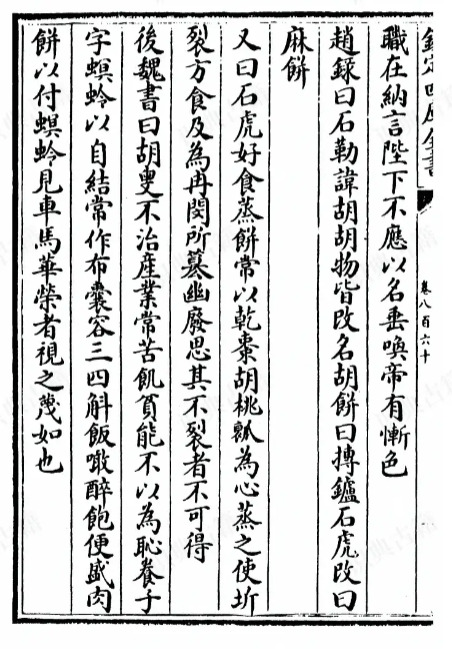 欽定四庫全書
卷八百六十
職在納言陛下不應以名垂喚帝有慚色
趙録曰石勒諱胡胡物皆改名胡餅曰摶鑪石虎改曰
麻餅
又曰石虎好食蒸餅常以乾棗胡桃瓤為心蒸之使坼
裂方食及為冉閔所篡幽廢思其不裂者不可得
後魏書曰胡叟不治産業常苦飢貧能不以為恥養子
字螟蛉以自結常作布囊容三四斛飯噉醉飽便盛肉
餅以付螟蛉見車馬華榮者視之蔑如也